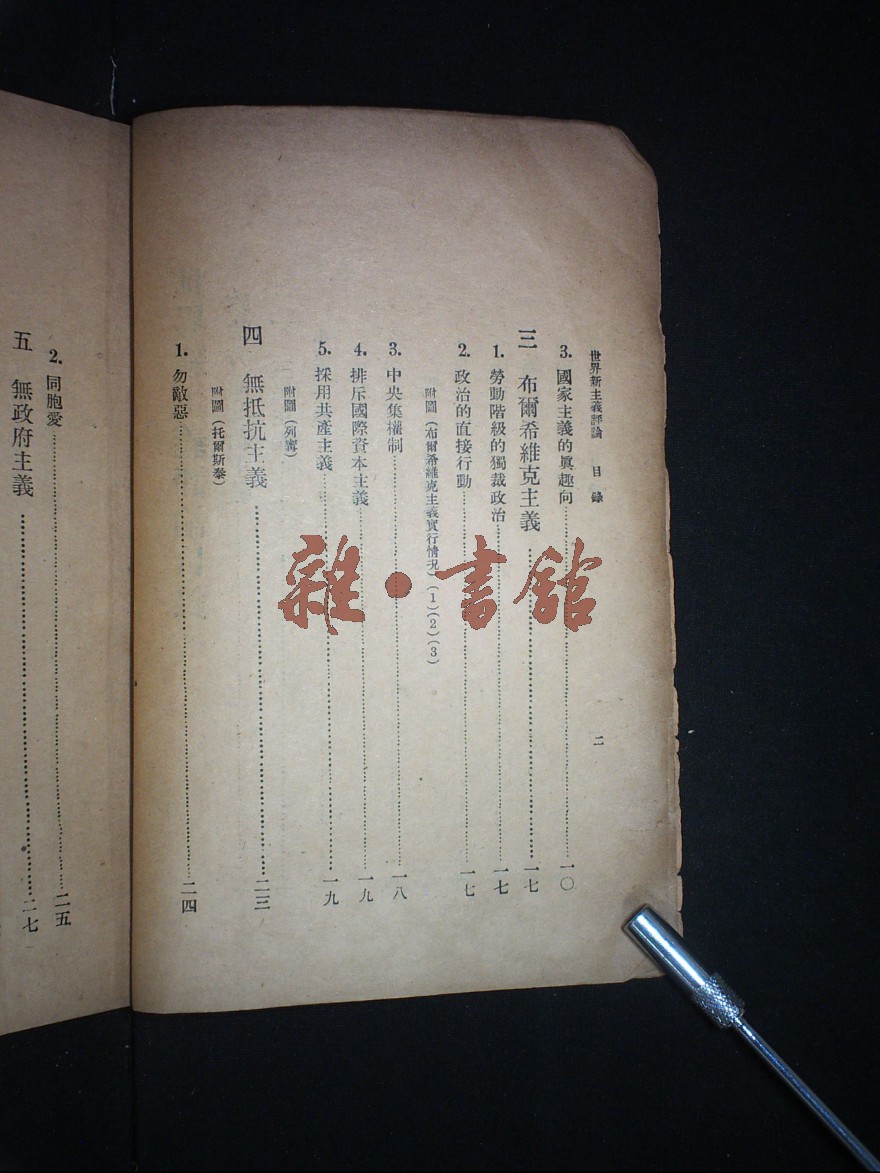 世界新主義評論 目錄 二
3. 國家主義的眞趣向 一〇
三 布爾希維克主義 一七
1. 勞動階級的獨裁政治 一七
2. 政治的直接行動 一七
附圖（布爾希維克主義實行情況）（1）（2）（3）
3. 中央集權制 一八
4. 排斥國際資本主義 一九
5. 採用共產主義 一九
附圖（列寗）
四 無抵抗主義 二三
附圖（托爾斯泰）
1. 勿敵惡 二四
2. 同胞愛 二五
五 無政府主義 二七
雜·書館